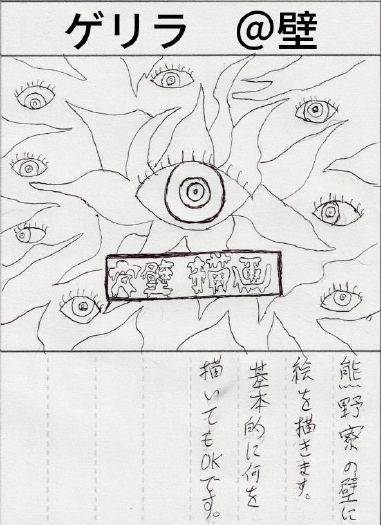 ゲリラ　@壁
壁 描画
熊野寮の壁に
絵を描きます。
基本的に何を
描いてもOKです。